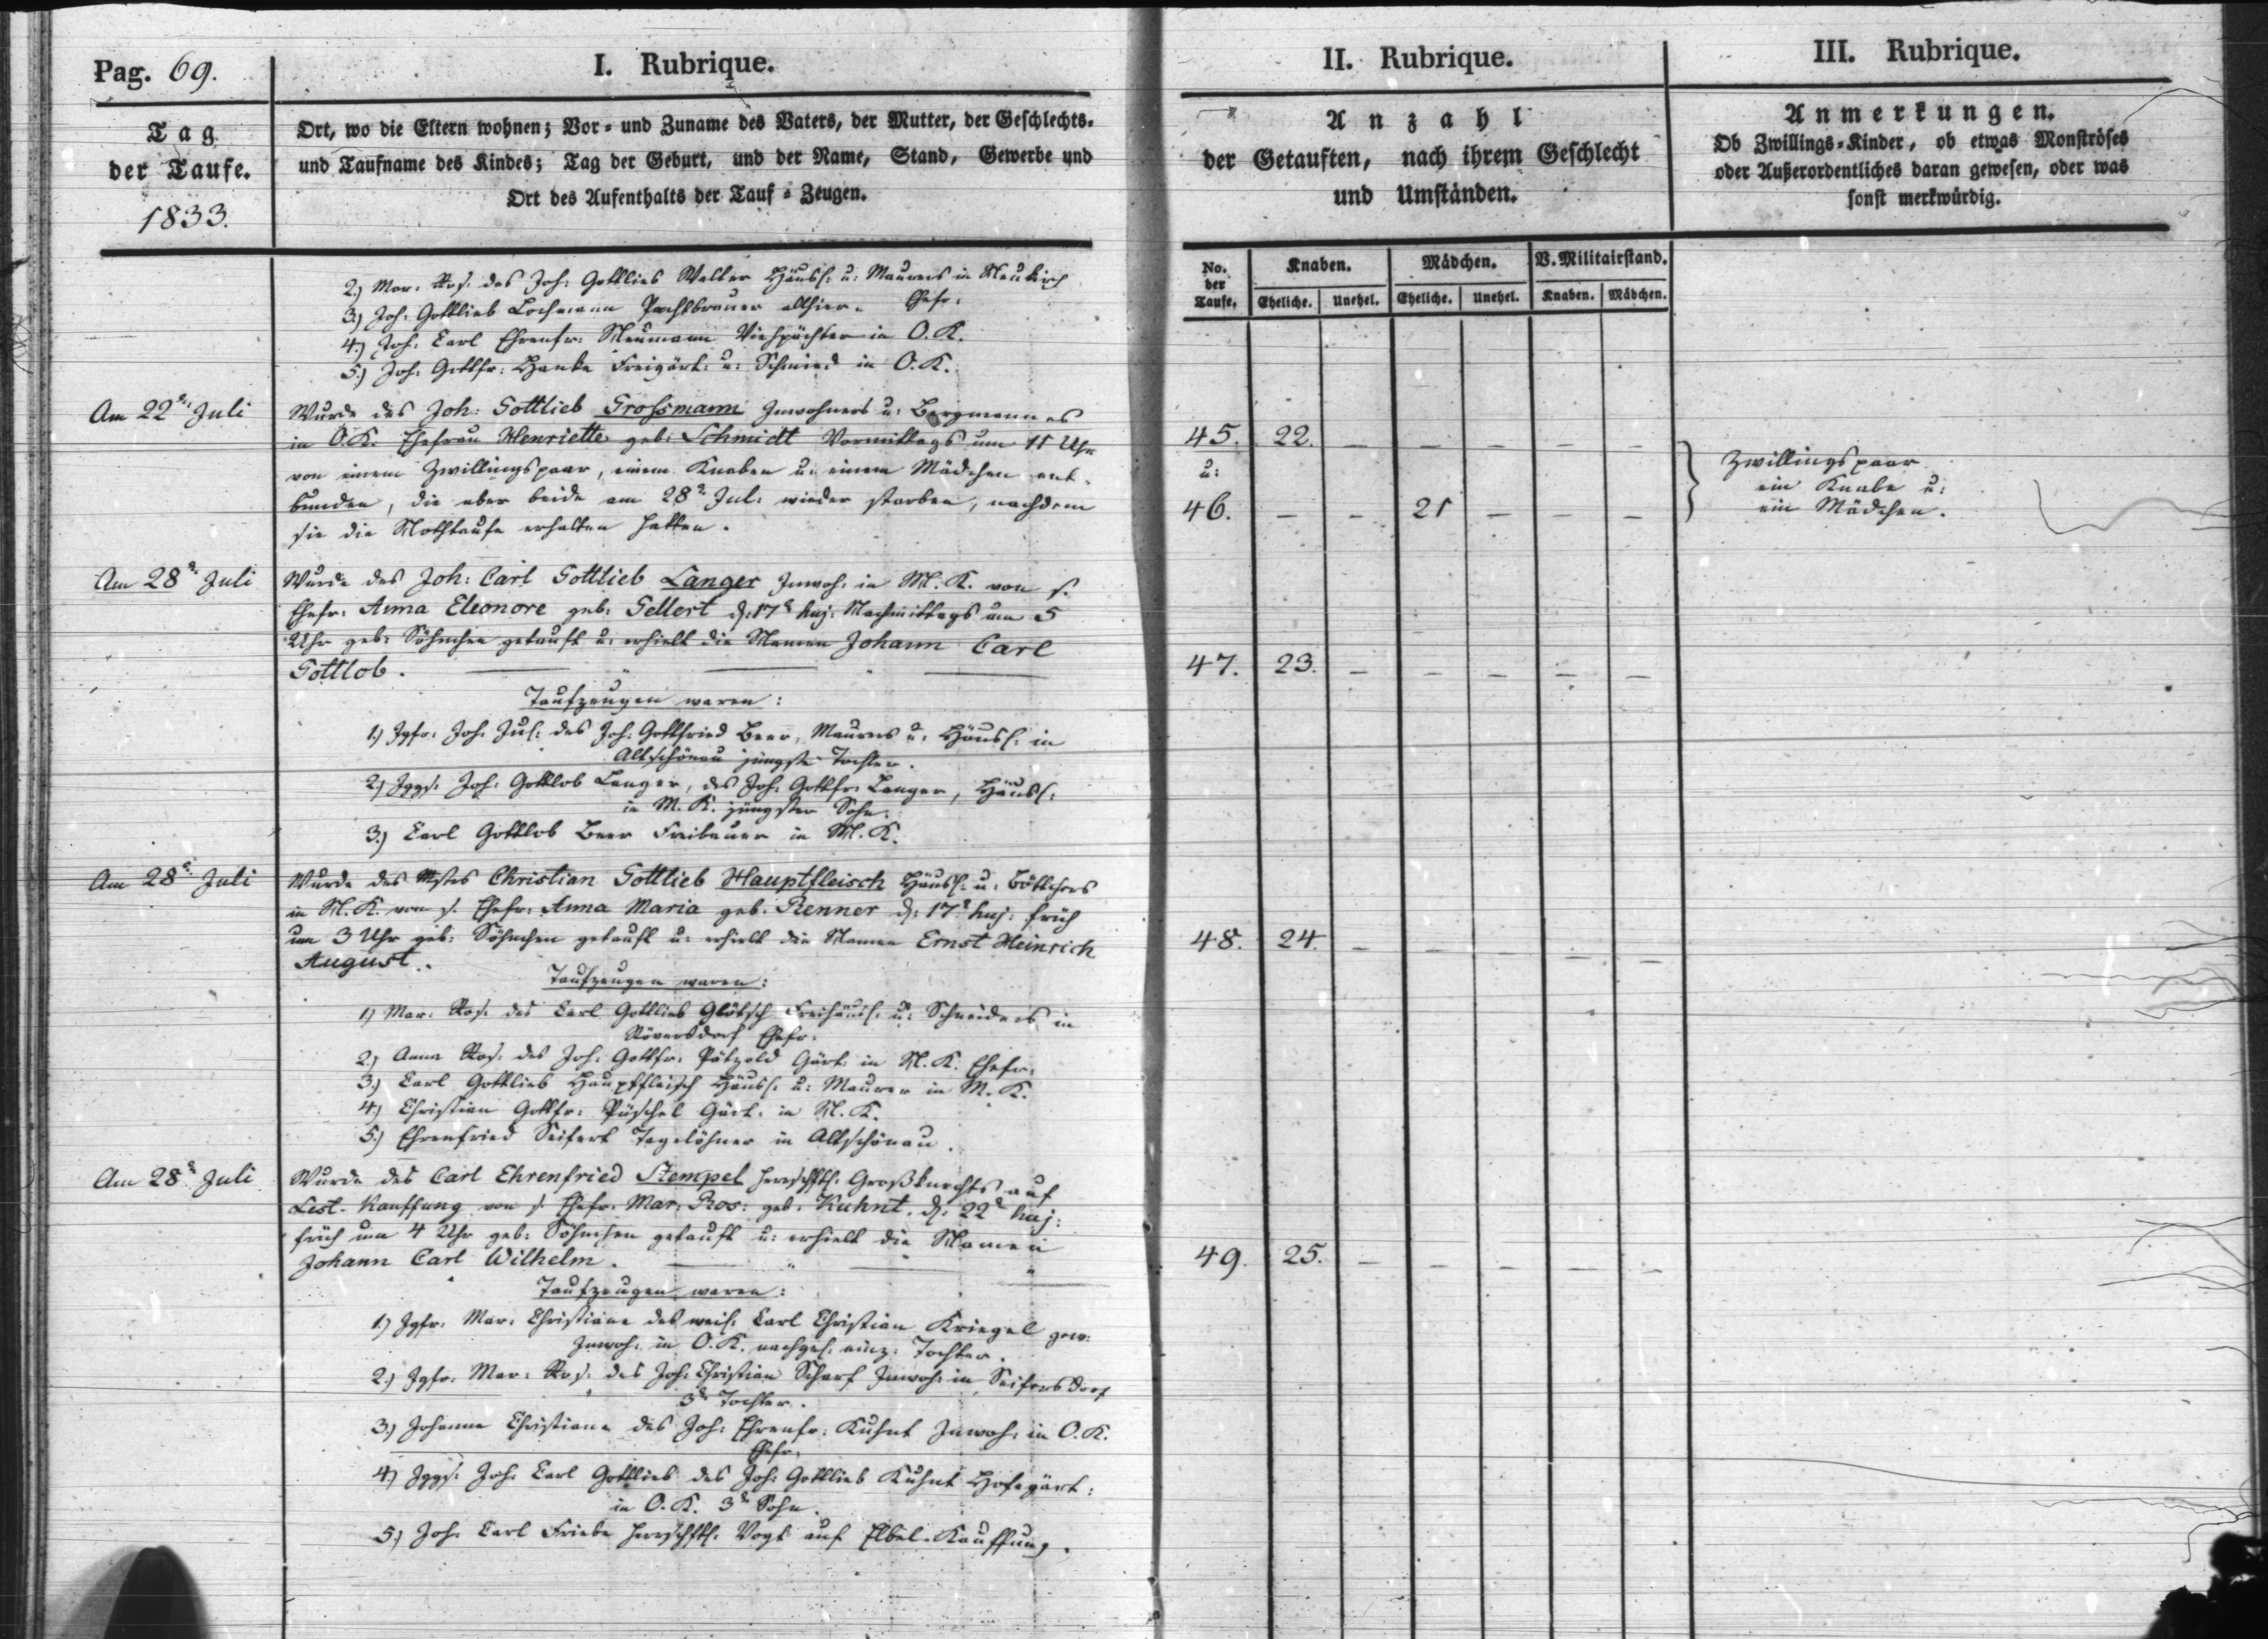 Pag. 69.
I. Rubrique.
Tag
der Taufe.
1833.
Ort, wo die Eltern wohnen; Vor- und Zuname des Vaters, der Mutter, der Geschlechts-
und Taufname des Kindes; Tag der Geburt, und der Name, Stand, Gewerbe und
Ort des Aufenthalts der Tauf-Zeugen.
2.) Mar. Ros. des Joh: Gottlieb Walter Häusl. u: Maurers in Neukirch
Ehefr:
3.) Joh: Gottlieb Lochmann Pachtbrauer allhier.
4.) Joh: Carl Ehrenfr: Neumann Viehpächter in O.K.
5.) Joh: Gottfr: Hanke Freigärt: u: Schmied in O.K.
Am 22n Juli
Wurde des Joh: Gottlieb Grossmann Inwohners u: Bergmannes
in O.K. Ehefrau Henriette geb: Schmidt Vormittags um 11 Uhr
von einem Zwillingspaar, einem Knaben u: einem Mädchen ent-
bunden, die aber beide am 28n Jul: wieder starben, nachdem
sie die Nothtaufe erhalten hatten.
Am 28n Juli
Wurde des Joh: Carl Gottlieb Langer Inwoh: in M.K. von s.
Ehefr: Anna Eleonore geb: Gellert d: 17n huj: Nachmittags um 5
Uhr geb: Söhnchen getauft u: erhielt die Namen Johann Carl
Gottlob.
Taufzeugen waren:
1.) Jgfr: Joh: Jul: des Joh: Gottfried Beer, Maurers u: Häusl: in
Altschönau jüngste Tochter.
2.) Jggs: Joh: Gottlob Langer, des Joh: Gottfr: Langer, Häusl:
in M.K. jüngster Sohn.
3.) Carl Gottlob Beer Freibauer in M.K.
Am 28n Juli
Wurde des Mstrs Christian Gottlieb Hauptfleisch Häusl: u: Böttchers
in M.K. von s. Ehefr: Anna Maria geb: Renner d: 17n huj: früh
um 3 Uhr geb: Söhnchen getauft u: erhielt die Namen Ernst Heinrich
August.
Taufzeugen waren:
1.) Mar: Ros: des Carl Gottlieb Glötsch Freihäusl: u: Schneiders in
Röversdorf Ehefr:
2.) Anna Ros: des Joh: Gottfr: Pätzold Gärt: in M.K. Ehefr:
3.) Carl Gottlieb Haupffleisch Häusl: u: Maurer in M.K.
4.) Christian Gottfr: Püschel Gärt: in M.K.
5.) Ehrenfried Seifert Tagelöhner in Altschönau.
Am 28n Juli
Wurde des Carl Ehrenfried Stempel herrschftl. Großknechts auf
Lest-Kauffung von s. Ehefr: Mar: Ros: geb: Kuhnt, d: 22n huj:
früh um 4 Uhr geb: Söhnchen getauft u: erhielt die Namen
Johann Carl Wilhelm.
Taufzeugen waren:
1.) Jgfr: Mar: Christiane des weil: Carl Christian Kriegel gew:
Inwoh: in O.K. nachgel: einz: Tochter.
2.) Jgfr: Mar: Ros: des Joh: Christian Scharf Inwoh: in Seifersdorf
3te Tochter.
3.) Johanne Christiane des Joh: Ehrenfr: Kuhnt Inwoh: in O.K.
Ehefr:
4.) Jggs: Joh: Carl Gottlieb des Joh: Gottlieb Kuhnt Hofegärt:
in O.K. 3r Sohn.
5.) Joh: Carl Friebe herrschftl. Vogt auf Elbel-Kauffung.
II. Rubrique.
Anzahl
der Getauften, nach ihrem Geschlecht
und Umständen.
No. der Taufe. Knaben. Mädchen. V. Militairstand.
Eheliche. Unehel. Eheliche. Unehel. Knaben. Mädchen.
45. 22. – – – – –
u:
46. – – 21 – – –
47. 23. – – – – –
48. 24. – – – – –
49. 25. – – – – –
III. Rubrique.
Anmerkungen.
Ob Zwillings-Kinder, ob etwas Monströses
oder Außerordentliches daran gewesen, oder was
sonst merkwürdig.
Zwillingspaar
ein Knabe u:
ein Mädchen.